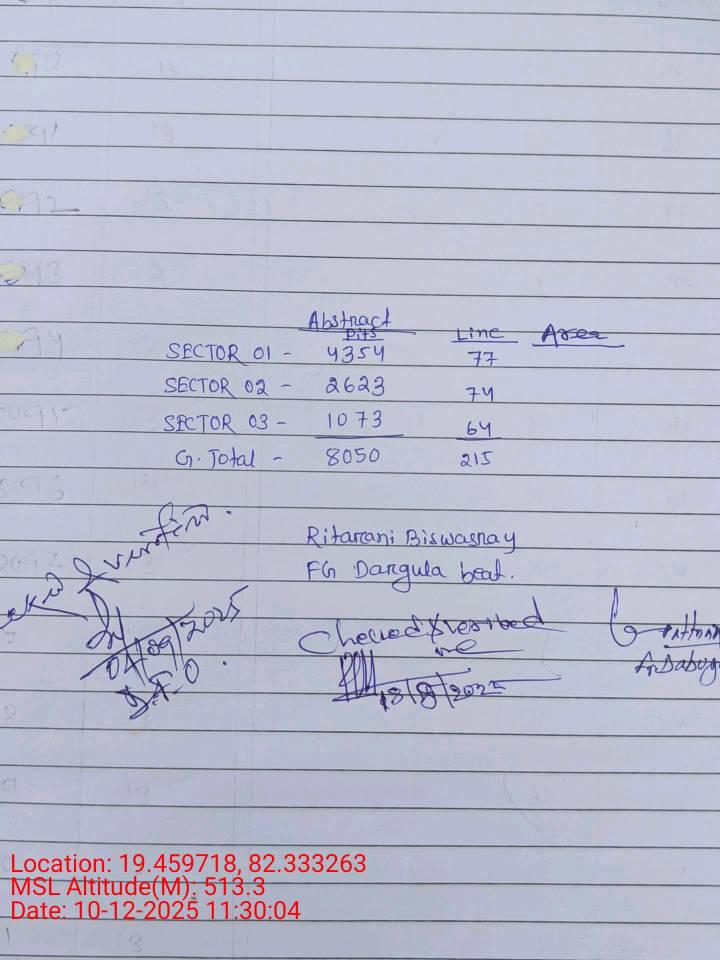 Abstract
Pits Line Area
SECTOR 01 - 4354 77
SECTOR 02 - 2623 74
SECTOR 03 - 1073 64
G. Total - 8050 215
Ritarani Biswasray
FG Dangula beat.
04/09/2025
Checked & verified
18/8/2025
Location: 19.459718, 82.333263
MSL Altitude(M): 513.3
Date: 10-12-2025 11:30:04